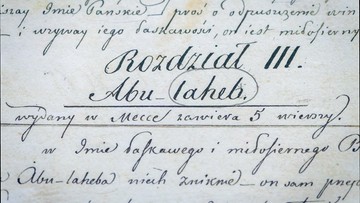 iszay Imie Pańskie, proś o odpuszczenie win
— i wzyway iego łaskawość, on iest miłosierny
Rozdział III.
Abu-laheb.
wydany w Mecce zawiera 5 wierszy.
w Imie łaskawego i miłosiernego B
Abu-laheba niech zniknie — on sam